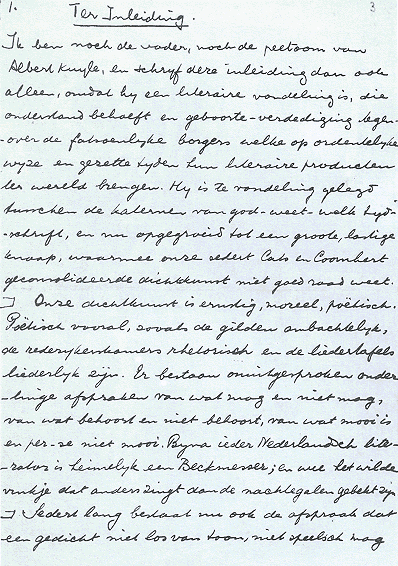 1. Ter Inleiding. 3
Ik ben noch de vader, noch de peetoom van
Albert Kuyle, en schryf deze inleiding dan ook
alleen, omdat hy een literaire vondeling is, die
onderstand behoeft en geboorte-verdediging tegen-
over de fatsoenlyke borgers welke op ordentelyke
wyze en gezette tyden hun literaire producten
ter wereld brengen. Hy is te vondeling gelegd
tusschen de katernen van god-weet-welk tyd-
-schrift, en nu opgegroeid tot een groote, lastige
knaap, waarmee onze sedert Cats en Coornhert
geconsolideerde dichtkunst niet goed raad weet.
Onze dichtkunst is ernstig, moreel, poëtisch.
Poëtisch vooral, zooals de gilden ambachtelyk,
de rederykerskamers rhetorisch en de liedertafels
liederlyk zyn. Er bestaan onuitgesproken onder-
-linge afspraken van wat mag en niet mag,
van wat behoort en niet behoort, van wat mooi is
en per-se niet mooi. Byna ieder Nederlandsch lite-
rator is heimelyk een Beckmesser; en wee het wilde
vinkje dat anders zingt dan de nachtegalen gebekt zyn
Sedert lang bestaat nu ook de afspraak dat
een gedicht niet los van toon, niet speelsch mag